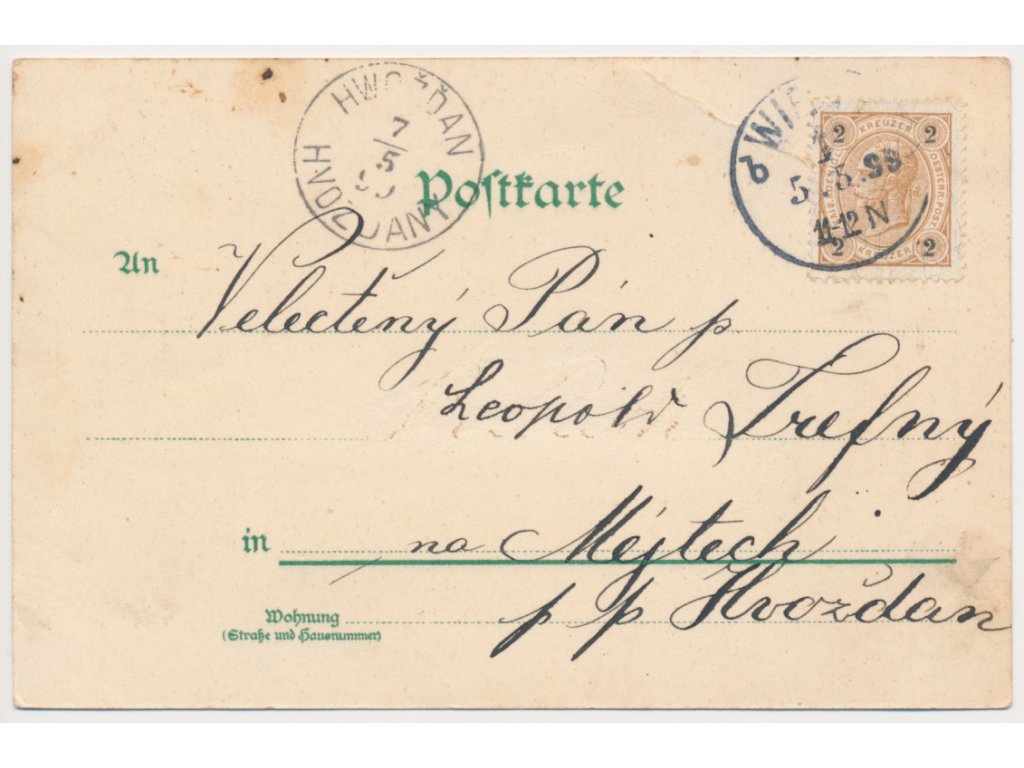 HWOŽĎAN
HVOŽĎANY
7/5
WIEN
5.5.98
11-12N
2 KREUZER 2
2 KREUZER 2
OESTERR. POST.
Postkarte
An
Velectěný Pán p
Leopold Trefný
in na Mejtech
Wohnung
(Straße und Hausnummer)
p p Hvoždan